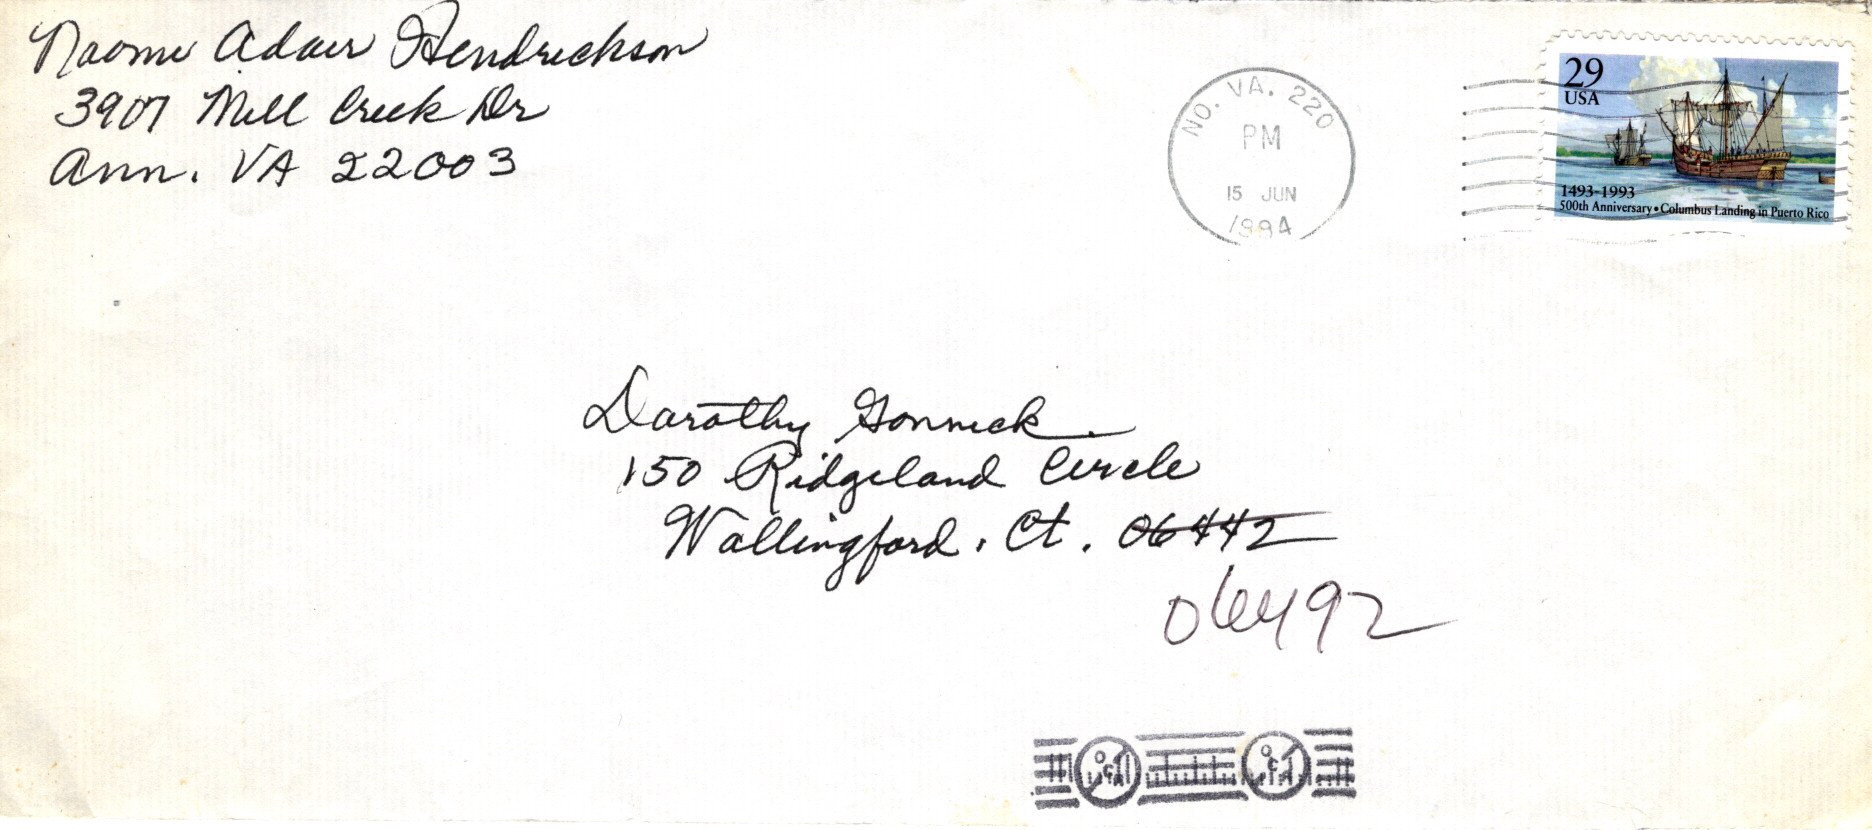 Naomi Adair Hendrickson
3907 Mill Creek Dr
Ann. VA 22003
NO. VA. 220
PM
15 JUN
1994
29
USA
1493-1993
500th Anniversary • Columbus Landing in Puerto Rico
Dorothy Gonnick
150 Ridgeland Circle
Wallingford, Ct. 06442
06492